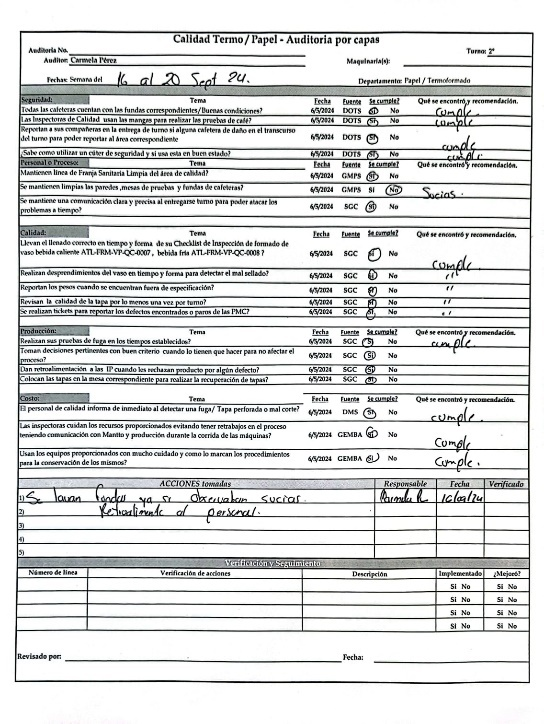 Calidad Termo / Papel - Auditoria por capas
Auditoria No.
Turno: 2°
Auditor: Carmela Pérez
Maquinaria(s):
Fechas: Semana del 16 al 20 Sept 24.
Departamento: Papel / Termoformado
Seguridad: Tema Fecha Fuente Se cumple? Qué se encontró y recomendación.
Todas las cafeteras cuentan con las fundas correspondientes/Buenas condiciones? 6/5/2024 DOTS Si No cumple
Las Inspectoras de Calidad usan las mangas para realizar las pruebas de café? 6/5/2024 DOTS Si No cumple
Reportan a sus compañeras en la entrega de turno si alguna cafetera de daño en el transcurso
del turno para poder reportar al área correspondiente 6/5/2024 DOTS Si No cumple
¿Sabe como utilizar un cúter de seguridad y si usa esta en buen estado? 6/5/2024 DOTS Si No cumple
Personal o Proceso: Tema Fecha Fuente Se cumple? Qué se encontró y recomendación.
Mantienen línea de Franja Sanitaria Limpia del área de calidad? 6/5/2024 GMPS Si No
Se mantienen limpias las paredes ,mesas de pruebas y fundas de cafeteras? 6/5/2024 GMPS Si No Sucias.
Se mantiene una comunicación clara y precisa al entregarse turno para poder atacar los
problemas a tiempo? 6/5/2024 SGC Si No
Calidad: Tema Fecha Fuente Se cumple? Qué se encontró y recomendación.
Llevan el llenado correcto en tiempo y forma de su Checklist de Inspección de formado de
vaso bebida caliente ATL-FRM-VP-QC-0007 , bebida fría ATL-FRM-VP-QC-0008 ? 6/5/2024 SGC Si No cumple
Realizan desprendimientos del vaso en tiempo y forma para detectar el mal sellado? 6/5/2024 SGC Si No "
Reportan los pesos cuando se encuentran fuera de especificación? 6/5/2024 SGC Si No "
Revisan la calidad de la tapa por lo menos una vez por turno? 6/5/2024 SGC Si No "
Se realizan tickets para reportar los defectos encontrados o paros de las PMC? 6/5/2024 SGC Si No "
Producción: Tema Fecha Fuente Se cumple? Qué se encontró y recomendación.
Realizan sus pruebas de fuga en los tiempos establecidos? 6/5/2024 SGC Si No cumple
Toman decisiones pertinentes con buen criterio cuando lo tienen que hacer para no afectar el
proceso? 6/5/2024 SGC Si No
Dan retroalimentación a las IP cuando les rechazan producto por algún defecto? 6/5/2024 SGC Si No
Colocan las tapas en la mesa correspondiente para realizar la recuperación de tapas? 6/5/2024 SGC Si No
Costo: Tema Fecha Fuente Se cumple? Qué se encontró y recomendación.
El personal de calidad informa de inmediato al detectar una fuga/ Tapa perforada o mal corte? 6/5/2024 DMS Si No cumple.
Las inspectoras cuidan los recursos proporcionados evitando tener retrabajos en el proceso
teniendo comunicación con Mantto y producción durante la corrida de las máquinas? 6/5/2024 GEMBA Si No Cumple
Usan los equipos proporcionados con mucho cuidado y como lo marcan los procedimientos
para la conservación de los mismos? 6/5/2024 GEMBA Si No Cumple.
ACCIONES tomadas Responsable Fecha Verificado
1) Se lavan fundas ya se observaban sucias. 16/09/24
2) al personal.
3)
4)
5)
Verificación y Seguimiento
Número de línea Verificación de acciones Descripción Implementado ¿Mejoró?
Si No Si No
Si No Si No
Si No Si No
Si No Si No
Revisado por: Fecha: